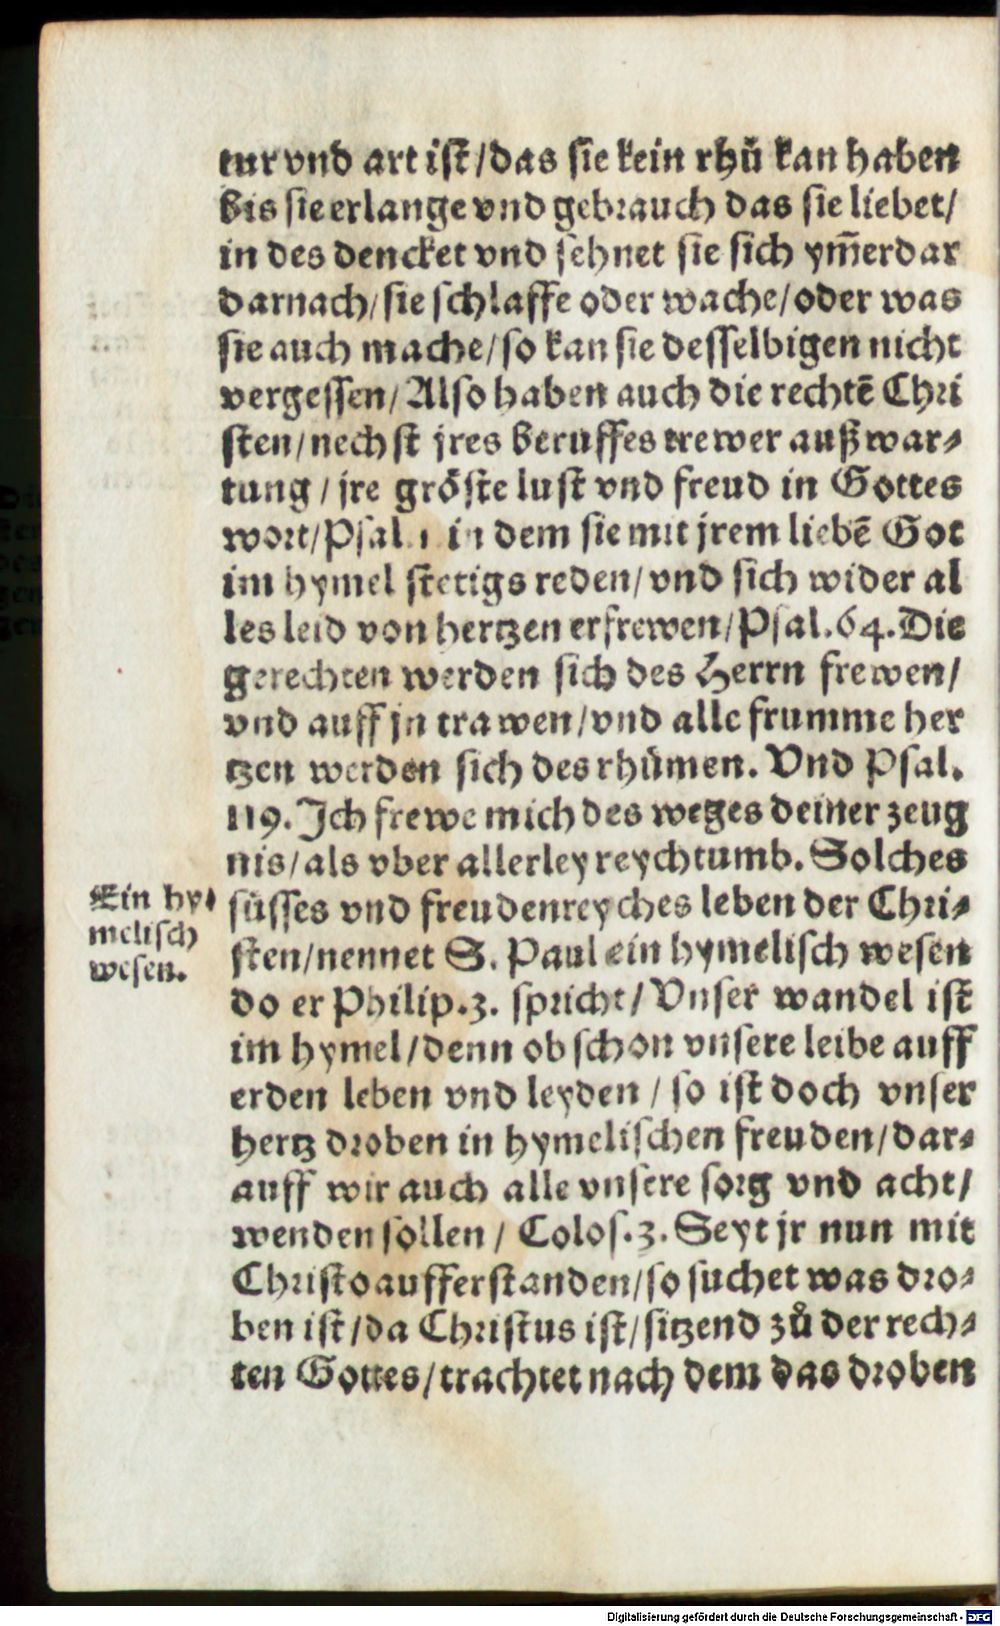 tur vnd art ist/das sie kein rhů kan haben
bis sie erlange vnd gebrauch das sie liebet/
in des dencket vnd sehnet sie sich ym̄erdar
darnach/sie schlaffe oder wache/oder was
sie auch mache/so kan sie desselbigen nicht
vergessen/Also haben auch die rechtē Chri
sten/nechst jres beruffes trewer außwar⸗
tung/jre gröste lust vnd freud in Gottes
wort/Psal.1 in dem sie mit jrem liebē Got
im hymel stetigs reden/vnd sich wider al
les leid von hertzen erfrewen/Psal.64.Die
gerechten werden sich des Herrn frewen/
vnd auff jn trawen/vnd alle frumme her
tzen werden sich des rhümen. Vnd Psal.
119. Ich frewe mich des weges deiner zeug
nis/als vber allerley reychtumb. Solches
Ein hy⸗
melisch
wesen.
süsses vnd freudenreyches leben der Chri⸗
sten/nennet S. Paul ein hymelisch wesen
do er Philip.3. spricht/Vnser wandel ist
im hymel/denn ob schon vnsere leibe auff
erden leben vnd leyden/so ist doch vnser
hertz droben in hymelischen freuden/dar⸗
auff wir auch alle vnsere sorg vnd acht/
wenden sollen/Colos.3. Seyt jr nun mit
Christo aufferstanden/so suchet was dro⸗
ben ist/da Christus ist/sitzend zů der rech⸗
ten Gottes/trachtet nach dem das droben
Digitalisierung gefördert durch die Deutsche Forschungsgemeinschaft - DFG